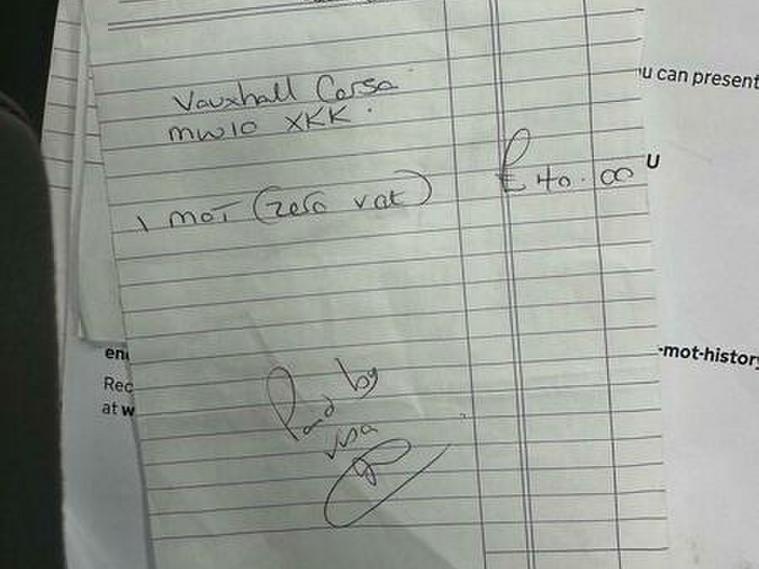 Vauxhall Corsa
MW10 XKK.
1 MOT (zero vat) £40.00
Paid by
visa
u can present
U
-mot-history
en
Rec
at w